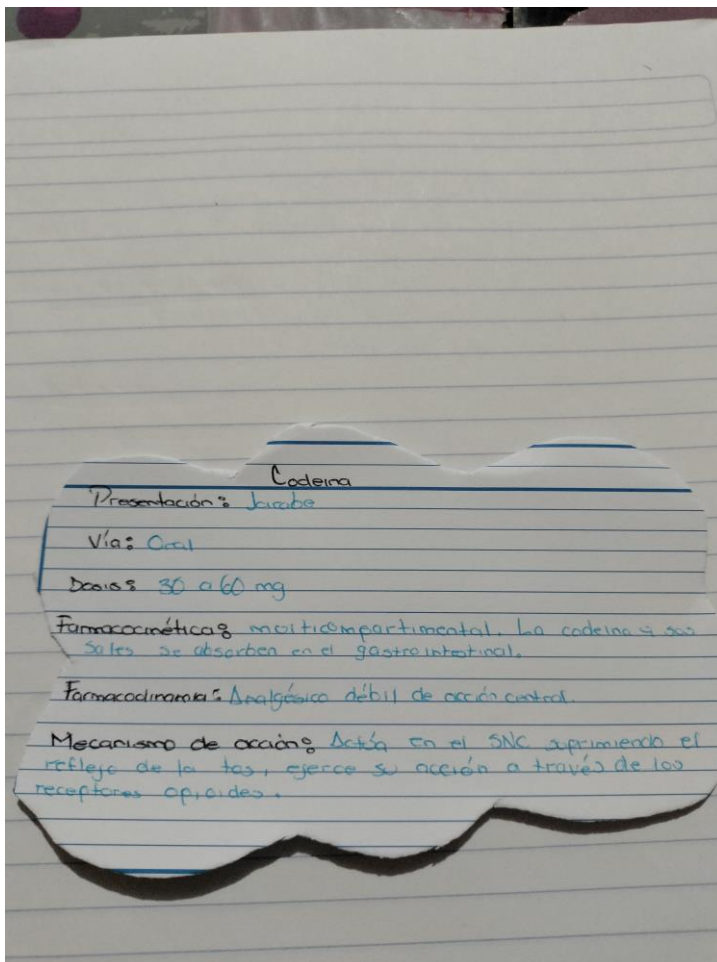 Codeina
Presentación: Jarabe
Vía: Oral
Dosis: 30 a 60 mg
Farmacocinética: multicompartimental. La codeina y sus
sales se absorben en el gastrointestinal.
Farmacodinamia: Analgésico débil de acción central.
Mecanismo de acción: Actúa en el SNC suprimiendo el
reflejo de la tos, ejerce su acción a través de los
receptores opioides.